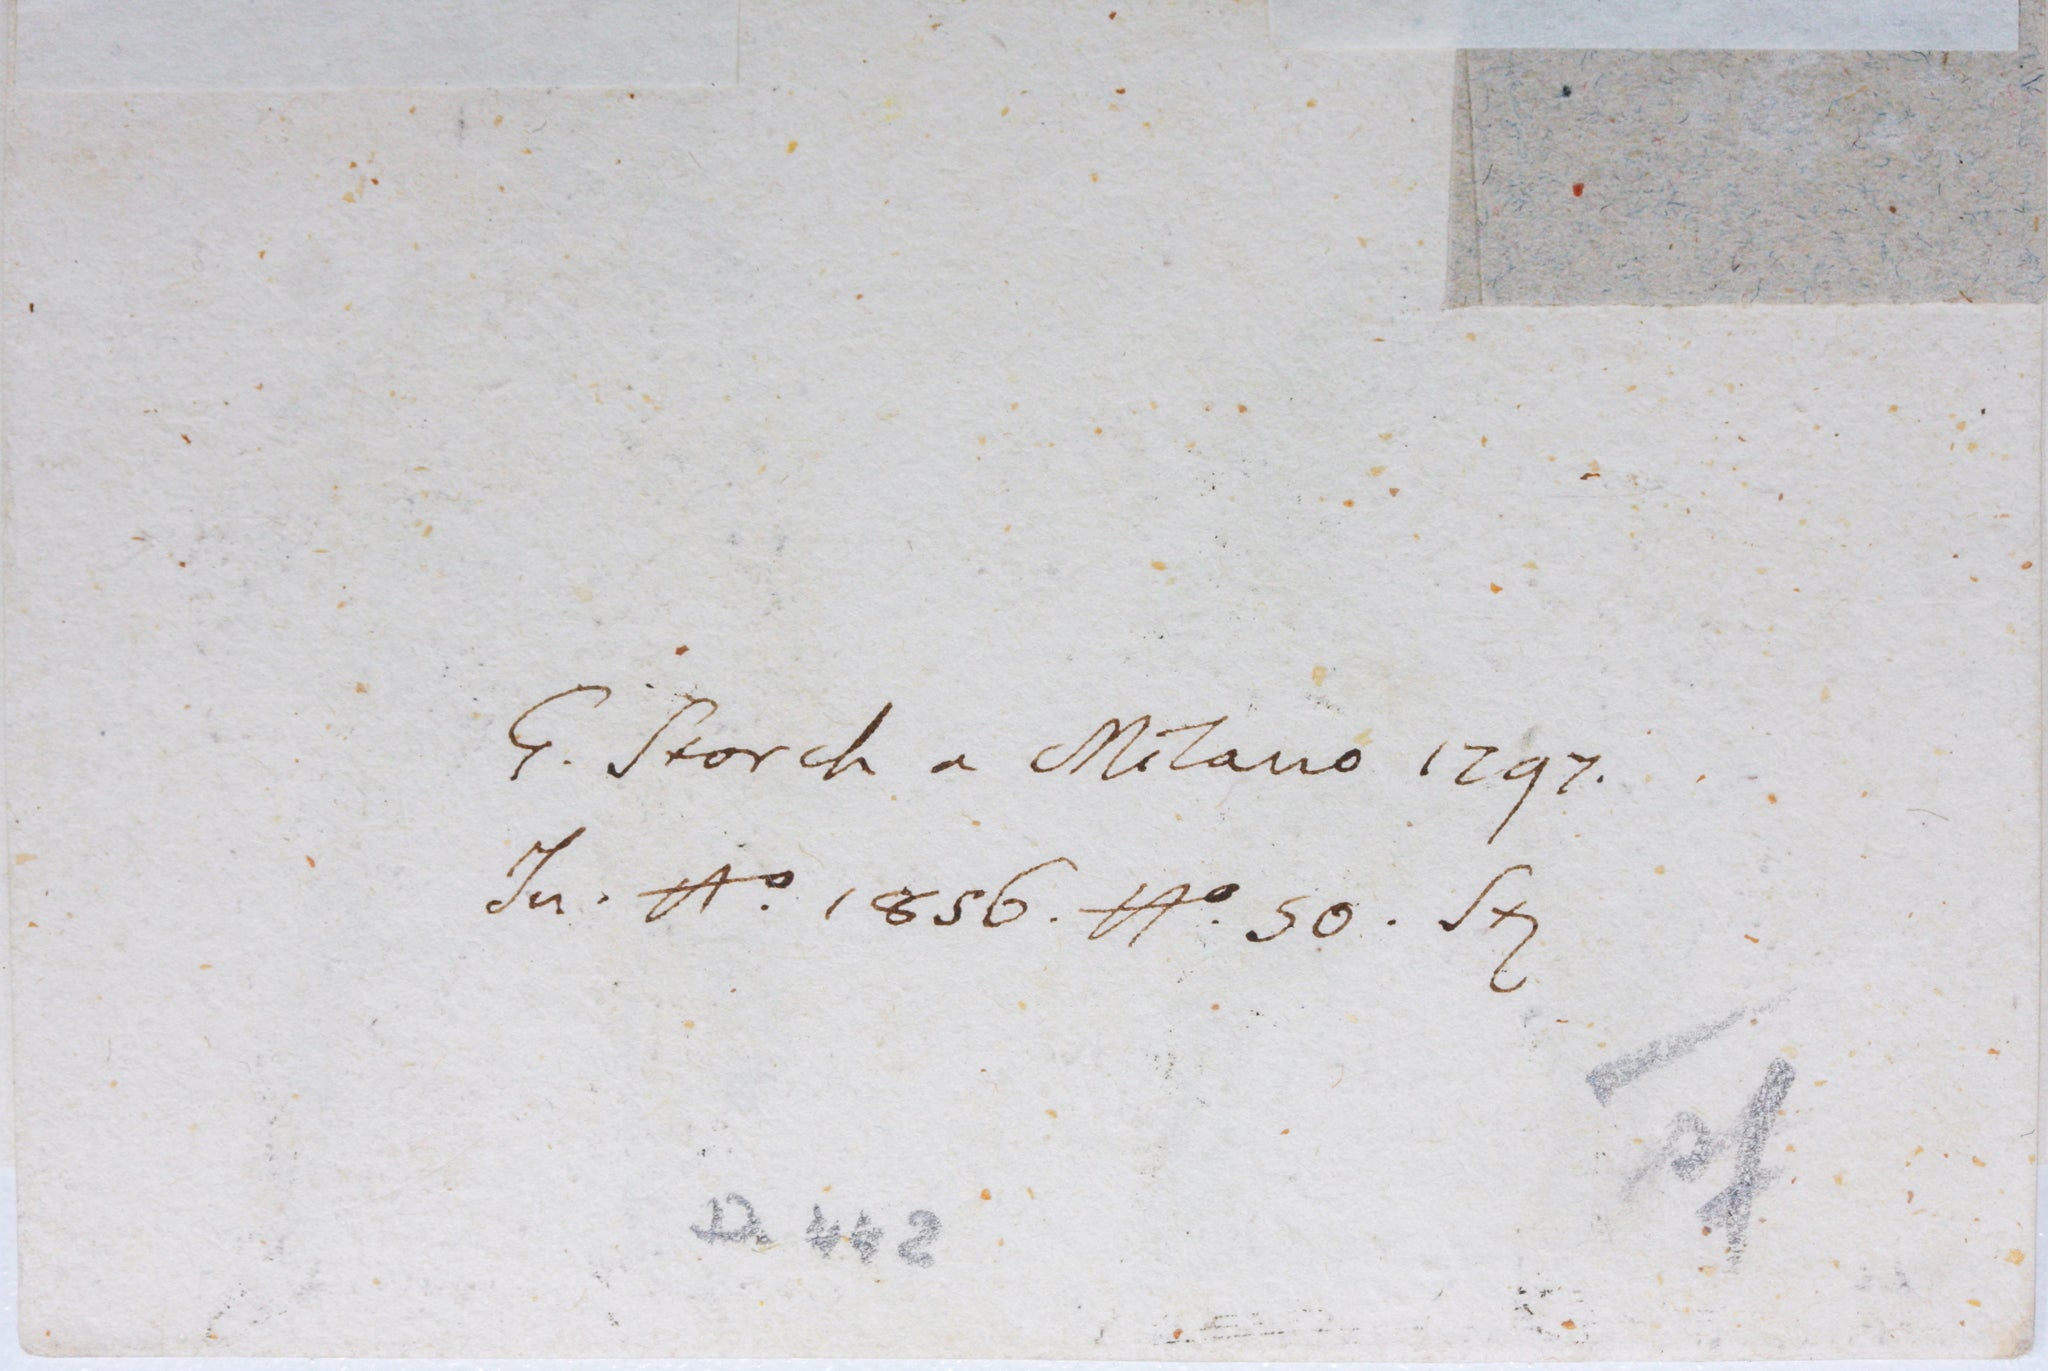 G. Storch a Milano 1797.
In. No. 1856. No. 50. Stz
D. 442